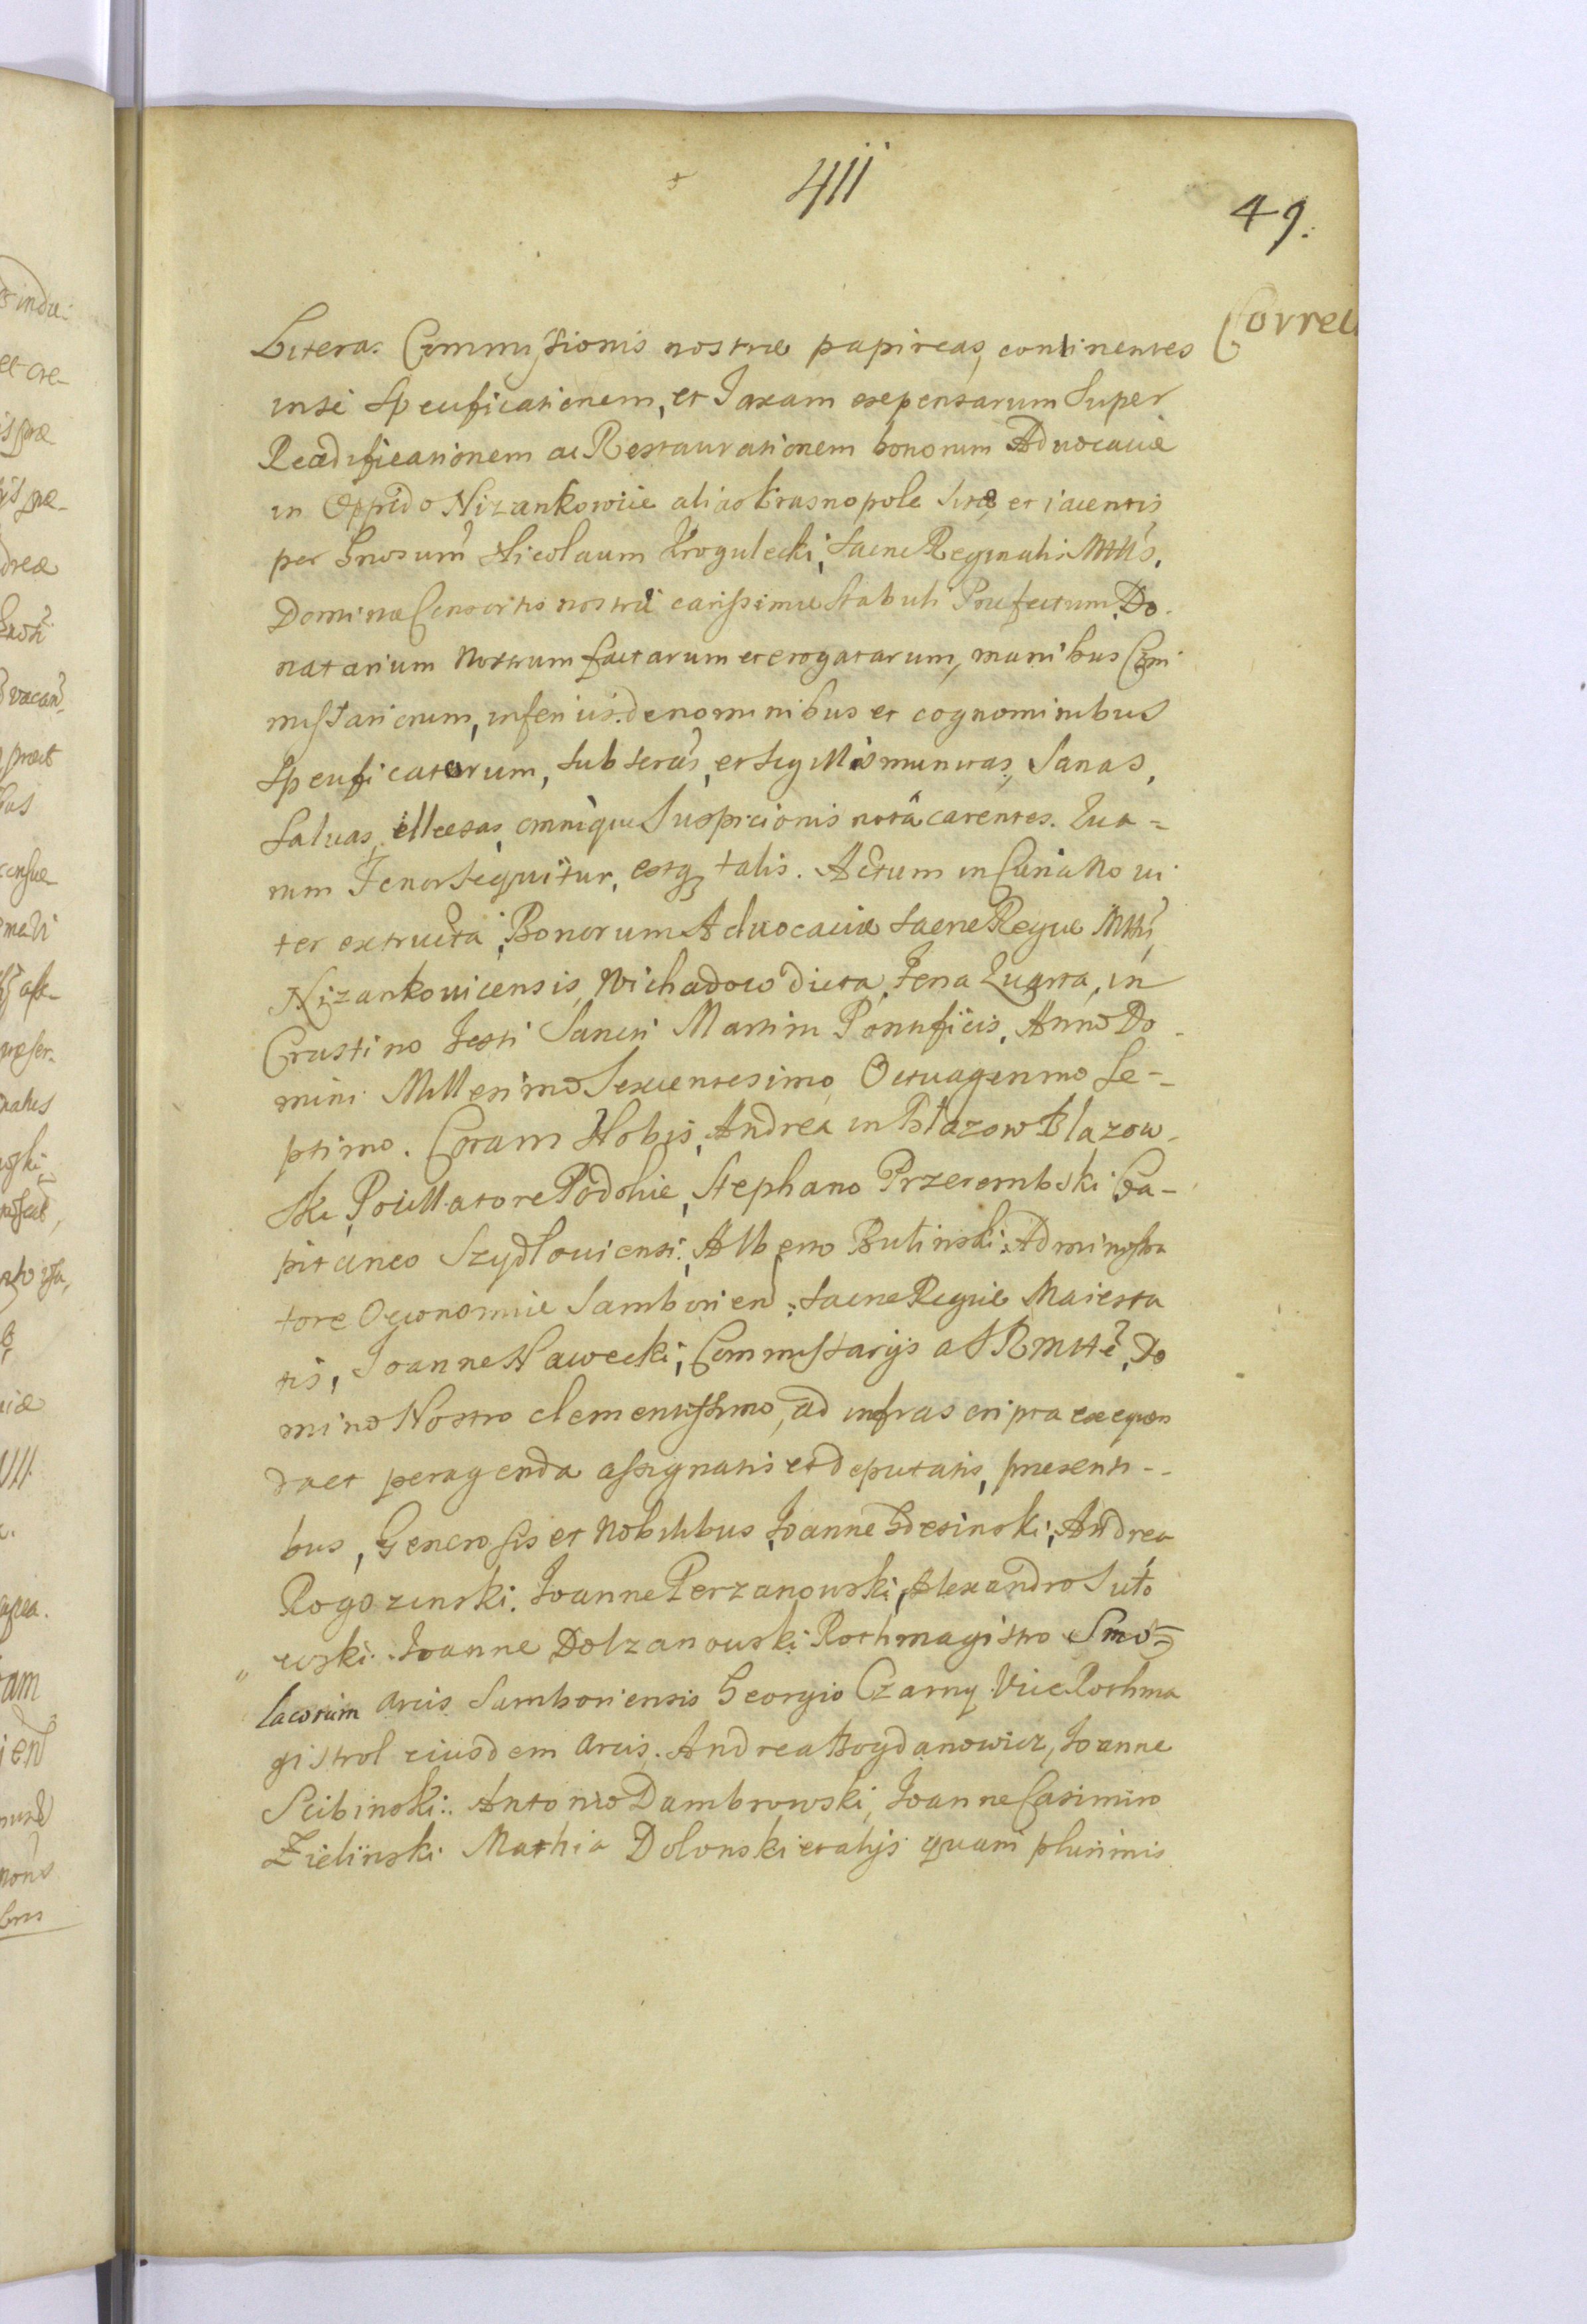 411
49.
Correct
Litera. Commissionis nostræ papireas, continentes
in se Specificationem, et Taxam expensarum Super
Reædificationem ac Restaurationem bonorum Advocaciæ
in Oppido Nizankowice alias Krasnopole Sitæ et iacentis
per Gnosum Nicolaum Krogulecki, Sacræ Reginalis Mttis,
Dominæ Consortis nostræ carissimæ Stabuli Præfectum, Do-
natarium Nostrum factarum et erogatarum, manibus Com-
missariorum, inferius de nominibus et cognominibus
Specificatorum, Subscras, et Sigillis munitas, Sanas,
Salvas, illæsas, omnique Suspicionis notâ carentes. Qua-
rum Tenor Sequitur, estq3 talis. Actum in Curia No vi
ter extructa, Bonorum Advocaciæ Sacræ Regiæ Mttis,
Nizankovicensis, Wichadow dicta, Feria Quarta, in
Crastino Festi Sancti Martini Pontificis, Anno Do-
mini Millesimo Sexcentesimo Octuagesimo Se-
ptimo. Coram Nobis, Andrea in Błazow Błazow-
ski, Pocillatore Podoliæ, Stephano Przerembski Ca-
pitaneo Szydłoviensi, Alberto Buliński Administra
tore Oeconomiæ Samborien. Sacræ Regiæ Maiesta
tis, Joanne Nawecki, Commissarijs a S R Mtte, Do
mino Nostro clementissimo, ad infrascripta exequen
da et peragenda assignatis et deputatis, præsenti-
bus, Generosis et Nobilibus, Joanne Gdesinski, Andrea
Rogozinski. Joanne Perzanowski, Alexandro Suto
wski. Joanne Dolzanouski Rothmagistro Smo-
lacorum arcis Samboriensis Georgio Czarny Vice Rothma
gistrol eiusdem arcis. Andrea Bogdanowicz, Joanne
Scibinski. Antonio Dambrowski, Joanne Casimiro
Zielinski Mathia Dolonski et alijs quam plurimis